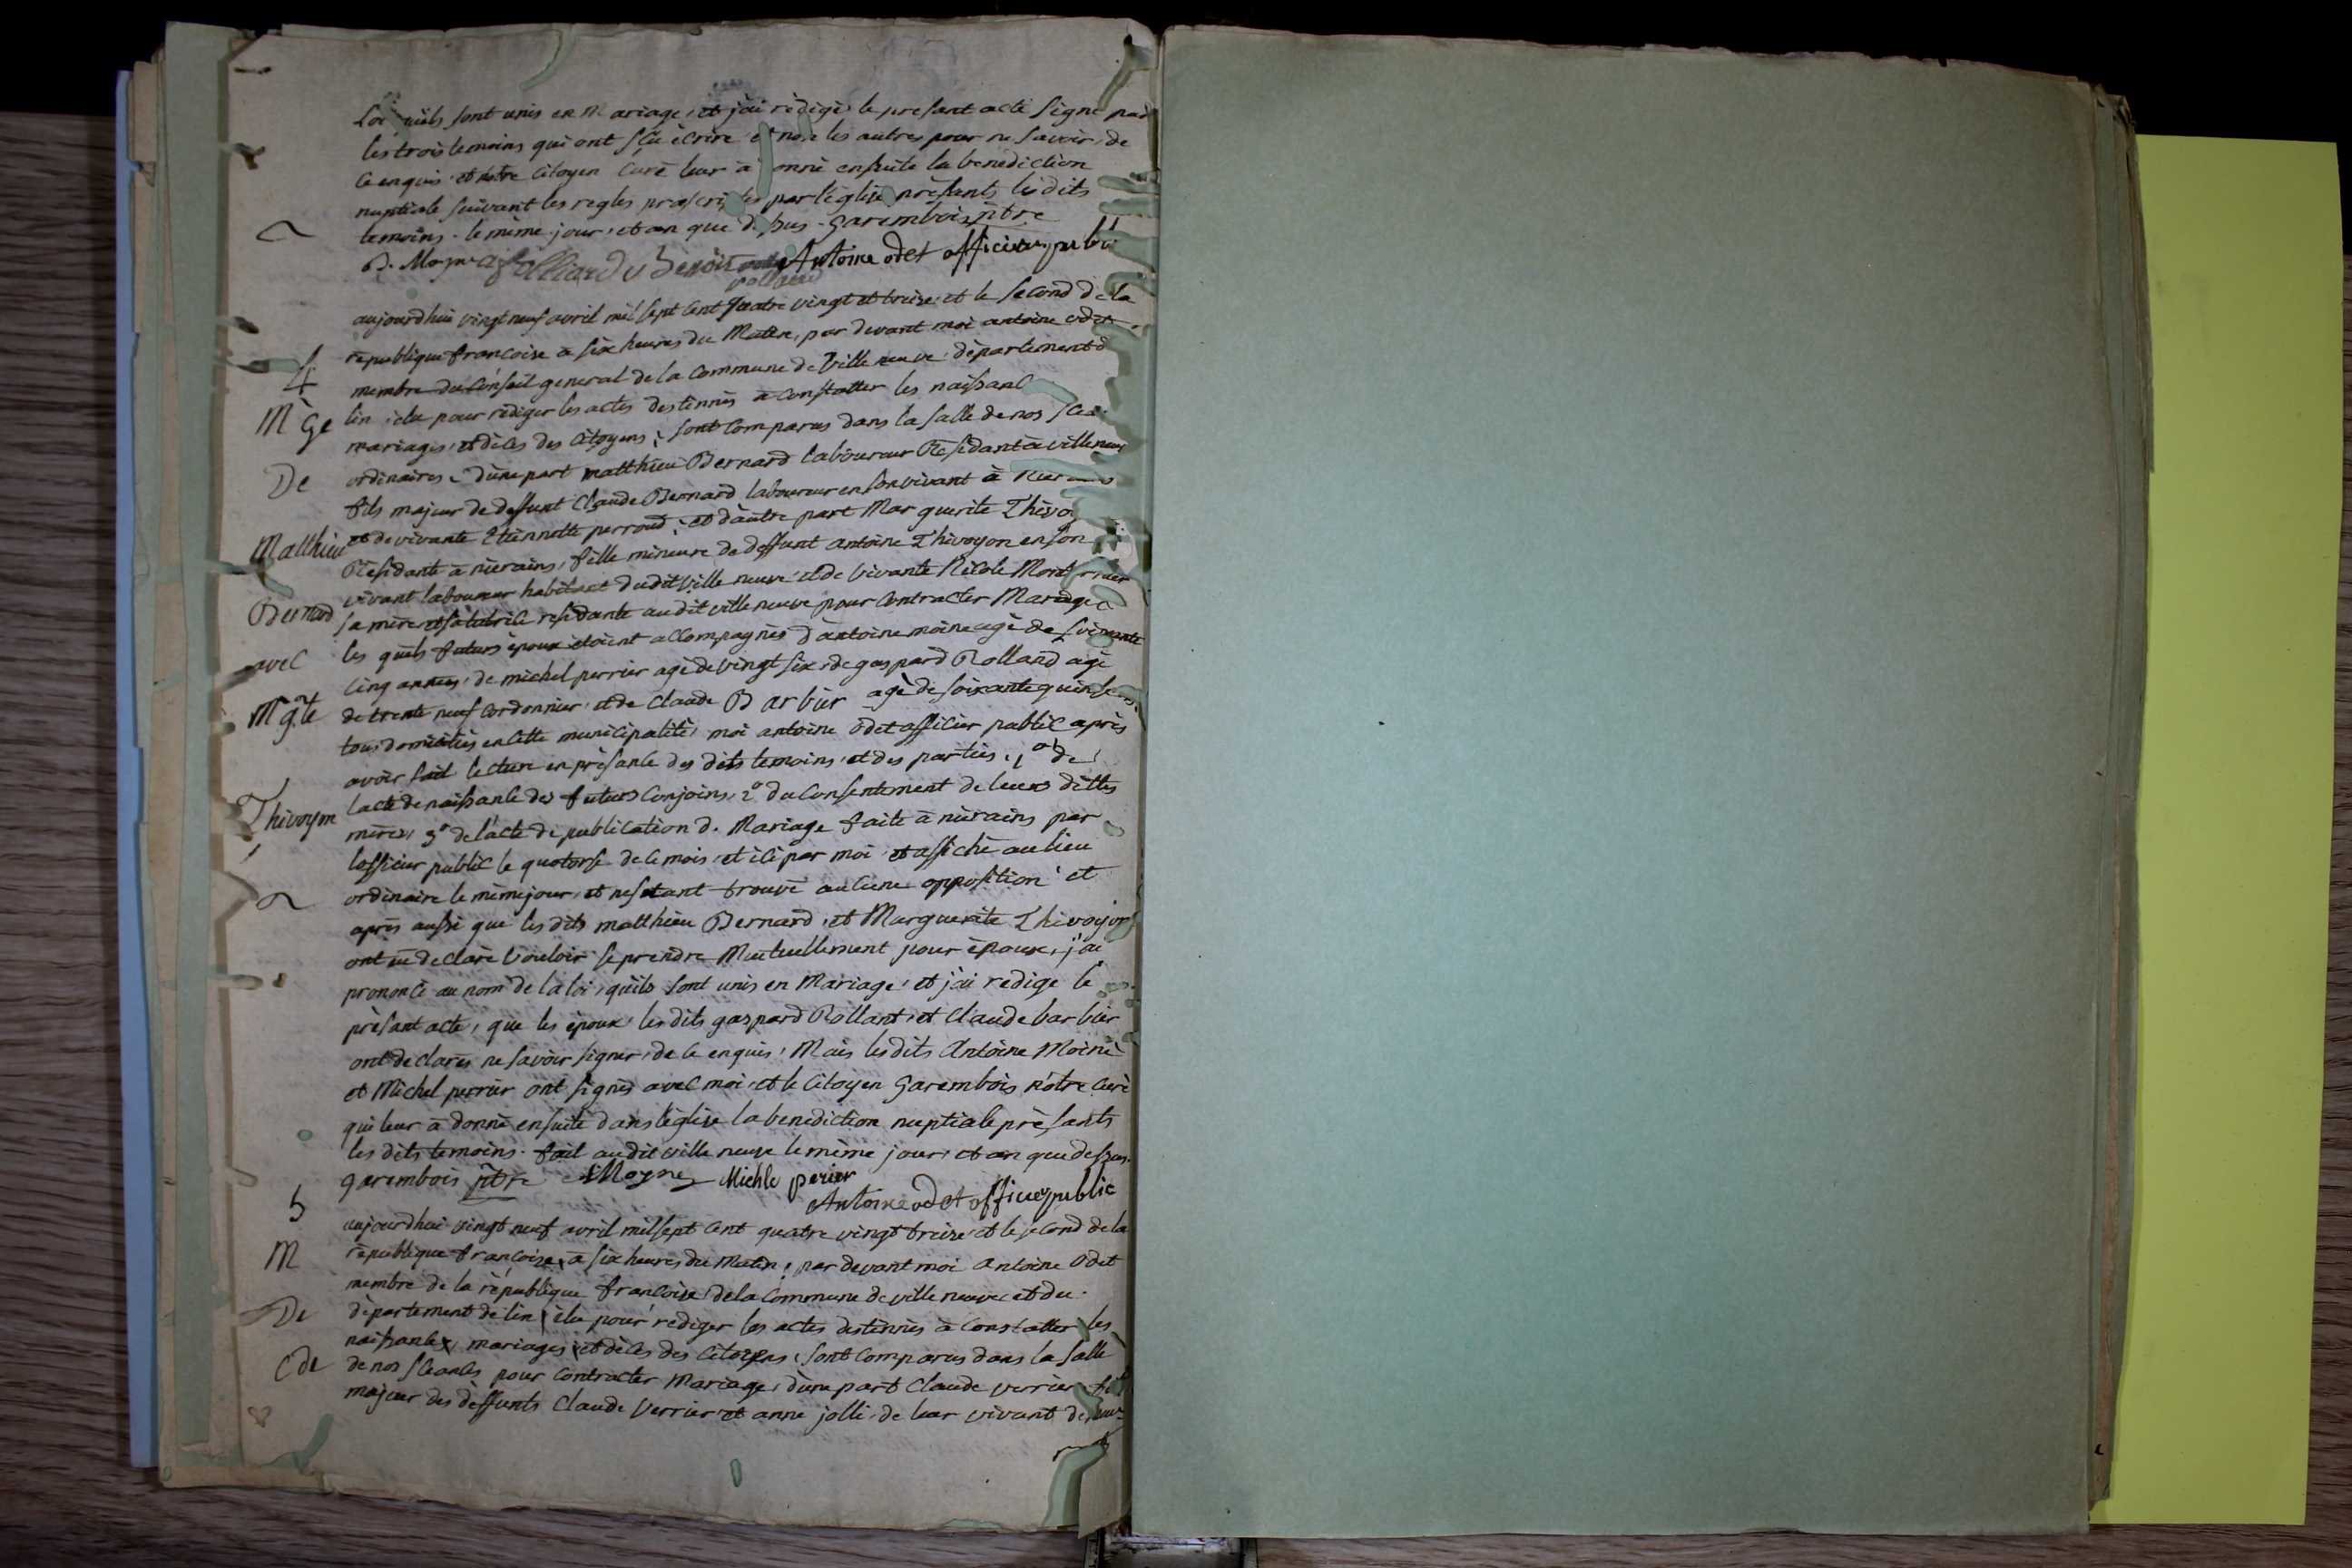 loi qu'ils sont unis en Mariage, et j'ai rèdigè le present acte signé par
les trois temoins qui ont sçu ècrire et non les autres pour ne savoir, de
ce enquis, et nôtre Citoyen Curè leur à donnè ensuite la benediction
nuptiale suivant les regles prescrites par l'èglise prèsents les dits
temoins. le mème jour, et an que dessus. Garembois ptre
Benoit Antoine odet officier public
rolland
aujourdhui vingt neuf avril mil sept cent quatre vingt et treize, et le second de la
4
rèpublique francoise à six heures du Matin, par devant moi antoine odet
membre du Conseil general de la commune de ville neuve dèpartement d
Mge
lin, èlu pour rèdiger les actes destinnès à constatter les naissanc
mariages, et dècès des citoyens; sont comparus dans la salle de nos
De
ordinaires, d'une part matthieu Bernard laboureur Rèsidant à villeneuv
fils majeur de deffunt Claude Bernard laboureur en son vivant à
Matthieu
et de vivante Etiennette perroud; et d'autre part Marguerite Thivo
Rèsidante à nièrains, fille mineure de deffunt antoine Thivoyon en son
vivant laboureur habitant dudit ville neuve et de vivante Nicole
Bernard
sa mère et sa tutrice residante audit ville neuve pour contracter Mariage
avec
les quels futurs èpoux ètoient accompagnès d'antoine moine agè de soixante
cinq annèes, de michel perrier agè de vingt six, de gaspard Rolland agè
Mgte
de trente neuf cordonnier, et de Claude Barbier agè de soixante quinse ans,
tous domiciliès en cette municipalitè, moi antoine odet officier public après
avoir fait lecture en prèsance des dits temoins, et des parties, 1o de
Thivoyon
lacte de naissance des futurs conjoins, 2o du consentement de leurs dittes
mères, 3o de l'acte de publication d. Mariage faite à nièrains par
lofficier public le quatorse de ce mois, et ici par moi, et affichè au lieu
ordinaire le mème jour, et ne sètant trouvè aucune opposition, et
après aussi que les dits matthieu Bernard, et Marguerite Thivoyon
ont eu declarè vouloir se prendre Mutuellement pour èpoux, j'ai
prononcè au nom de la loi, qu'ils sont unis en Mariage, et j'ai redigè le
prèsant acte, que les èpoux, les dits gaspard Rollant, et Claude barbier
ont declarès ne savoir signer, de ce enquis, Mais les dits Antoine Moine
et Michel perrier ont signès avec moi, et le Citoyen Garembois nôtre curè
qui leur à donnè ensuite dans lèglise la benediction nuptiale prèsants
les dits temoins. fait audit ville neuve le mème jour, et an que dessus.
garembois ptre AMoyne Michle perier
Antoine odet officier public
5
aujourdhui vingt neuf avril mil sept cent quatre vingt treize, et le second de la
M
rèpublique françoise, à six heures du Matin, par devant moi antoine Odet
membre de la rèpublique francoise de la commune de ville neuve et du
De
dèpartement de lin, èlu pour rèdiger les actes destinnès à constatter les
naissances, mariages, et dècès des citoyens, sont comparus dans la salle
Cde
de nos sceances pour contracter Mariage, d'une part Claude verrier fils
majeur des dèffunts Claude Verrier et anne jolli, de leur vivant